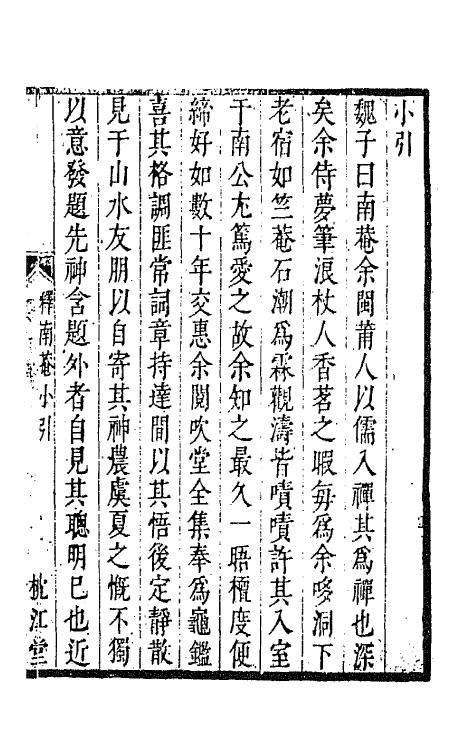 小引
魏子曰南菴余閩莆人以儒入禪其爲禪也深
矣余侍夢筆浪杖人香茗之暇每爲余哆洞下
老宿如竺菴石潮爲霖觀濤皆嘖嘖許其入室
于南公尢篤愛之故余知之最久一晤檀度便
締好如數十年交惠余閱吹堂全集奉爲龜鑑
喜其格調匪常詞章持達間以其悟後定靜散
見于山水友朋以自寄其神農虞夏之慨不獨
以意發題先神含題外者自見其聰明已也近
釋南菴 小引
桃江堂